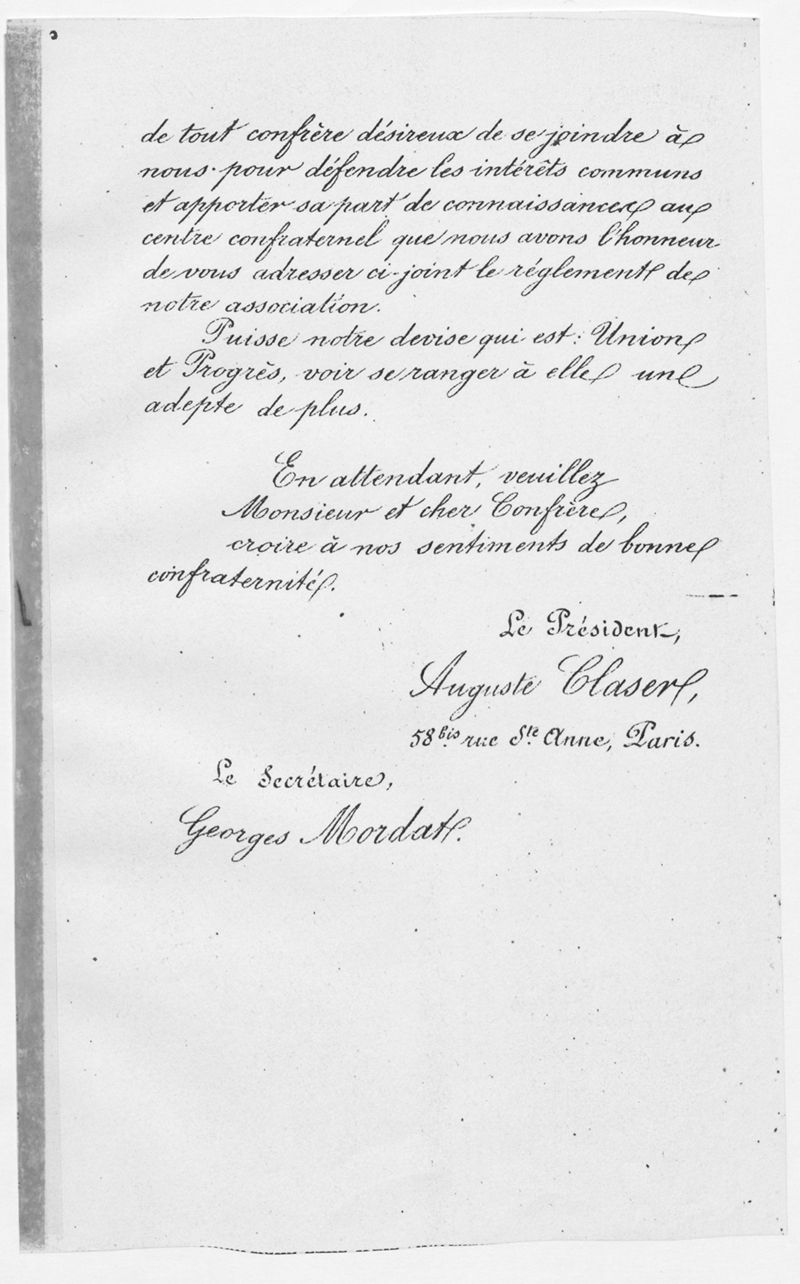 de tout confrère désireux de se joindre à
nous pour défendre les intérêts communs
et apporter sa part de connaissances au
centre confraternel que nous avons l'honneur
de vous adresser ci-joint le réglement de
notre association.
Puisse notre devise qui est : Union
et Progrès, voir se ranger à elle un
adepte de plus.
En attendant, veuillez
Monsieur et cher Confrère,
croire à nos sentiments de bonne
confraternité.
Le Président,
Auguste Claser,
58 bis rue Ste Anne, Paris.
Le Secrétaire,
Georges Mordat.